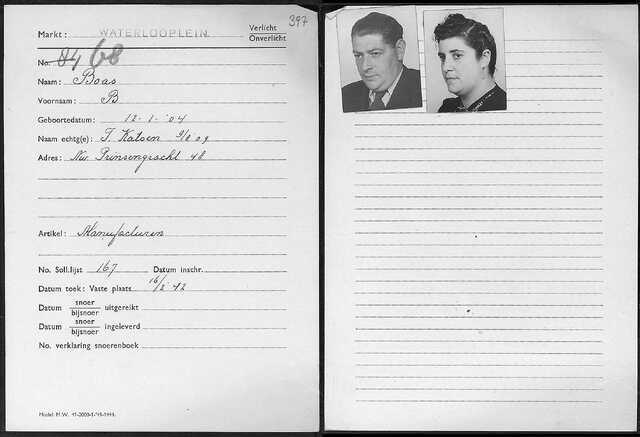 397
Markt: WATERLOOPLEIN. Verlicht Onverlicht
No. 84 68
Naam: Boas
Voornaam: B
Geboortedatum: 12-1-'04
Naam echtg(e): T. Katoen 9/8 09
Adres: Nw. Prinsengracht 48
Artikel: Manufacturen
No. Soll.lijst 167 Datum inschr.
Datum toek: Vaste plaats 16/2 42
Datum snoer bijsnoer uitgereikt
Datum snoer bijsnoer ingeleverd
No. verklaring snoerenboek